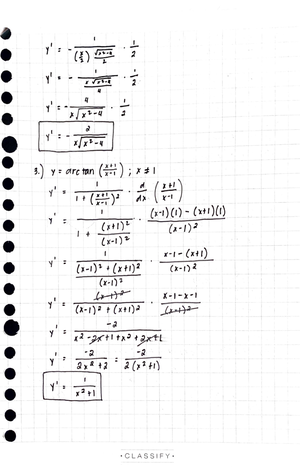 y' = - 1 / ((x/2) √(x²-4)/2) · 1/2
y' = - 1 / (x√(x²-4)/4) · 1/2
y' = - 4 / (x√(x²-4)) · 1/2
y' = - 2 / (x√(x²-4))
3.) y = arctan ((x+1)/(x-1)) ; x ≠ 1
y' = 1 / (1 + ((x+1)/(x-1))²) · d/dx ((x+1)/(x-1))
y' = 1 / (1 + (x+1)²/(x-1)²) · ((x-1)(1) - (x+1)(1)) / (x-1)²
y' = 1 / (((x-1)² + (x+1)²)/(x-1)²) · (x-1-(x+1)) / (x-1)²
y' = (x-1)² / ((x-1)² + (x+1)²) · (x-1-x-1) / (x-1)²
y' = -2 / (x² - 2x + 1 + x² + 2x + 1)
y' = -2 / (2x² + 2) = -2 / (2(x²+1))
y' = 1 / (x²+1)
• CLASSIFY •